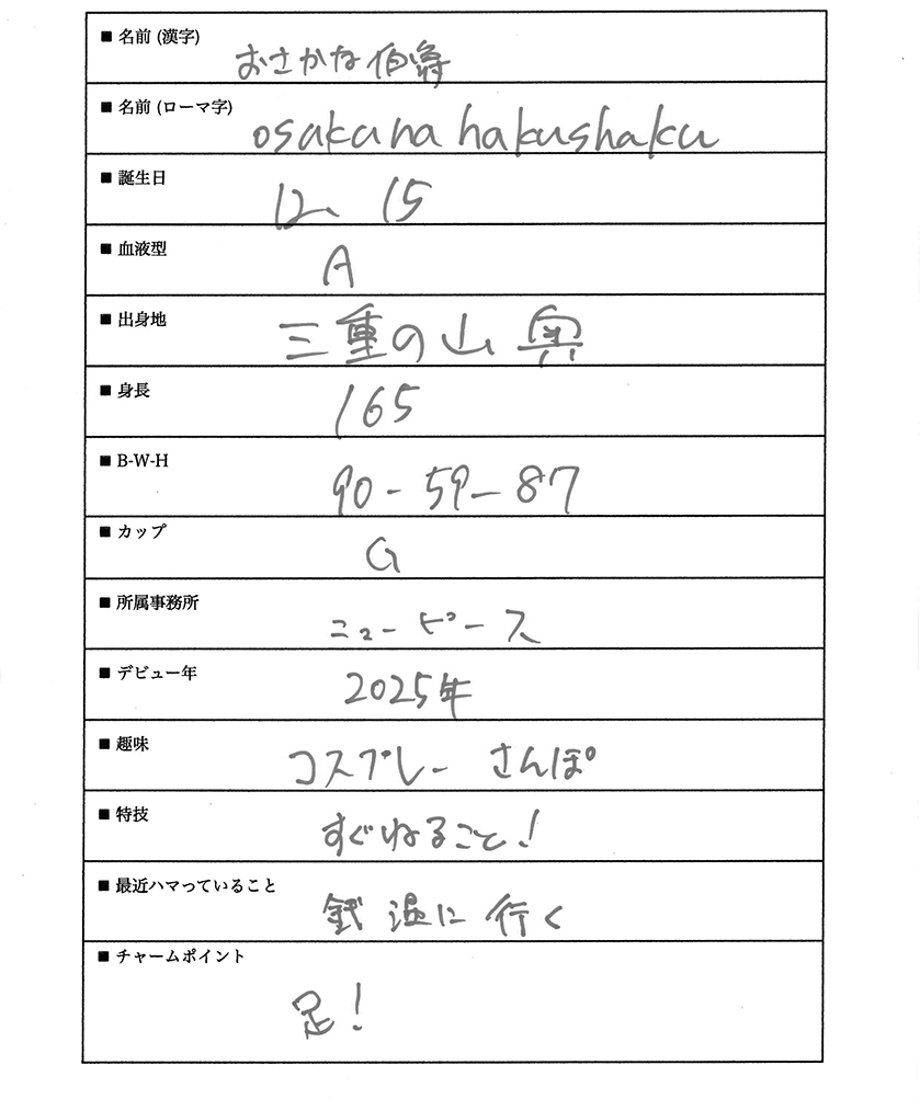 ■ 名前 (漢字)
おさかな伯爵
■ 名前 (ローマ字)
osakana hakushaku
■ 誕生日
12、15
■ 血液型
A
■ 出身地
三重の山奥
■ 身長
165
■ B-W-H
90-59-87
■ カップ
G
■ 所属事務所
ニューピース
■ デビュー年
2025年
■ 趣味
コスプレー さんぽ
■ 特技
すぐねること!
■ 最近ハマっていること
銭湯に行く
■ チャームポイント
足!